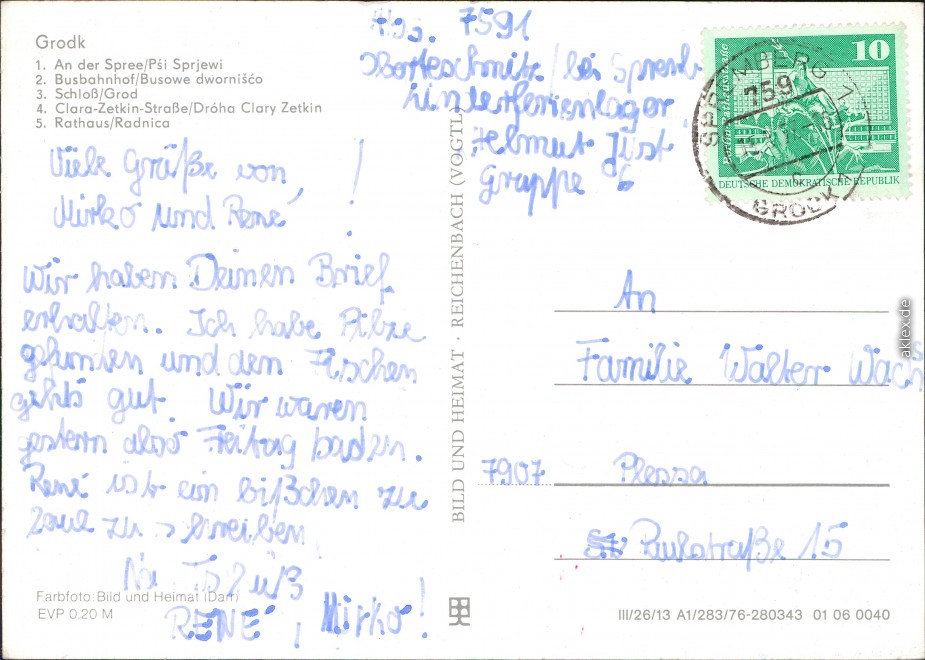 Grodk
1. An der Spree/Pśi Sprjewi
2. Busbahnhof/Busowe dwornišćo
3. Schloß/Grod
4. Clara-Zetkin-Straße/Dróha Clary Zetkin
5. Rathaus/Radnica
Viele Grüße von
Mirko und René !
Wir haben Deinen Brief
erhalten. Ich habe Pilze
gefunden und den Fischen
gehts gut. Wir waren
gestern also Freitag baden.
René ist ein bißchen zu
faul zu schreiben
RENÉ, Mirko!
Farbfoto: Bild und Heimat (Darr)
EVP 0.20 M
BILD UND HEIMAT · REICHENBACH (VOGTL)
Abs. 7591
bei Spremb
Kinderferienlager
Helmut Just
Gruppe 6
10
DEUTSCHE DEMOKRATISCHE REPUBLIK
SPREMBERG 1
759
GRODK
An
Familie Walter
7907 Plessa
Paulstraße 15
III/26/13 A1/283/76-280343 01 06 0040
aklex.de